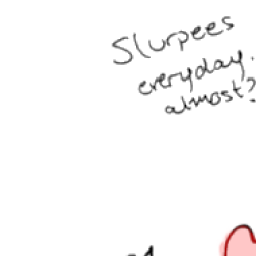 Slurpees
everyday.
almost?